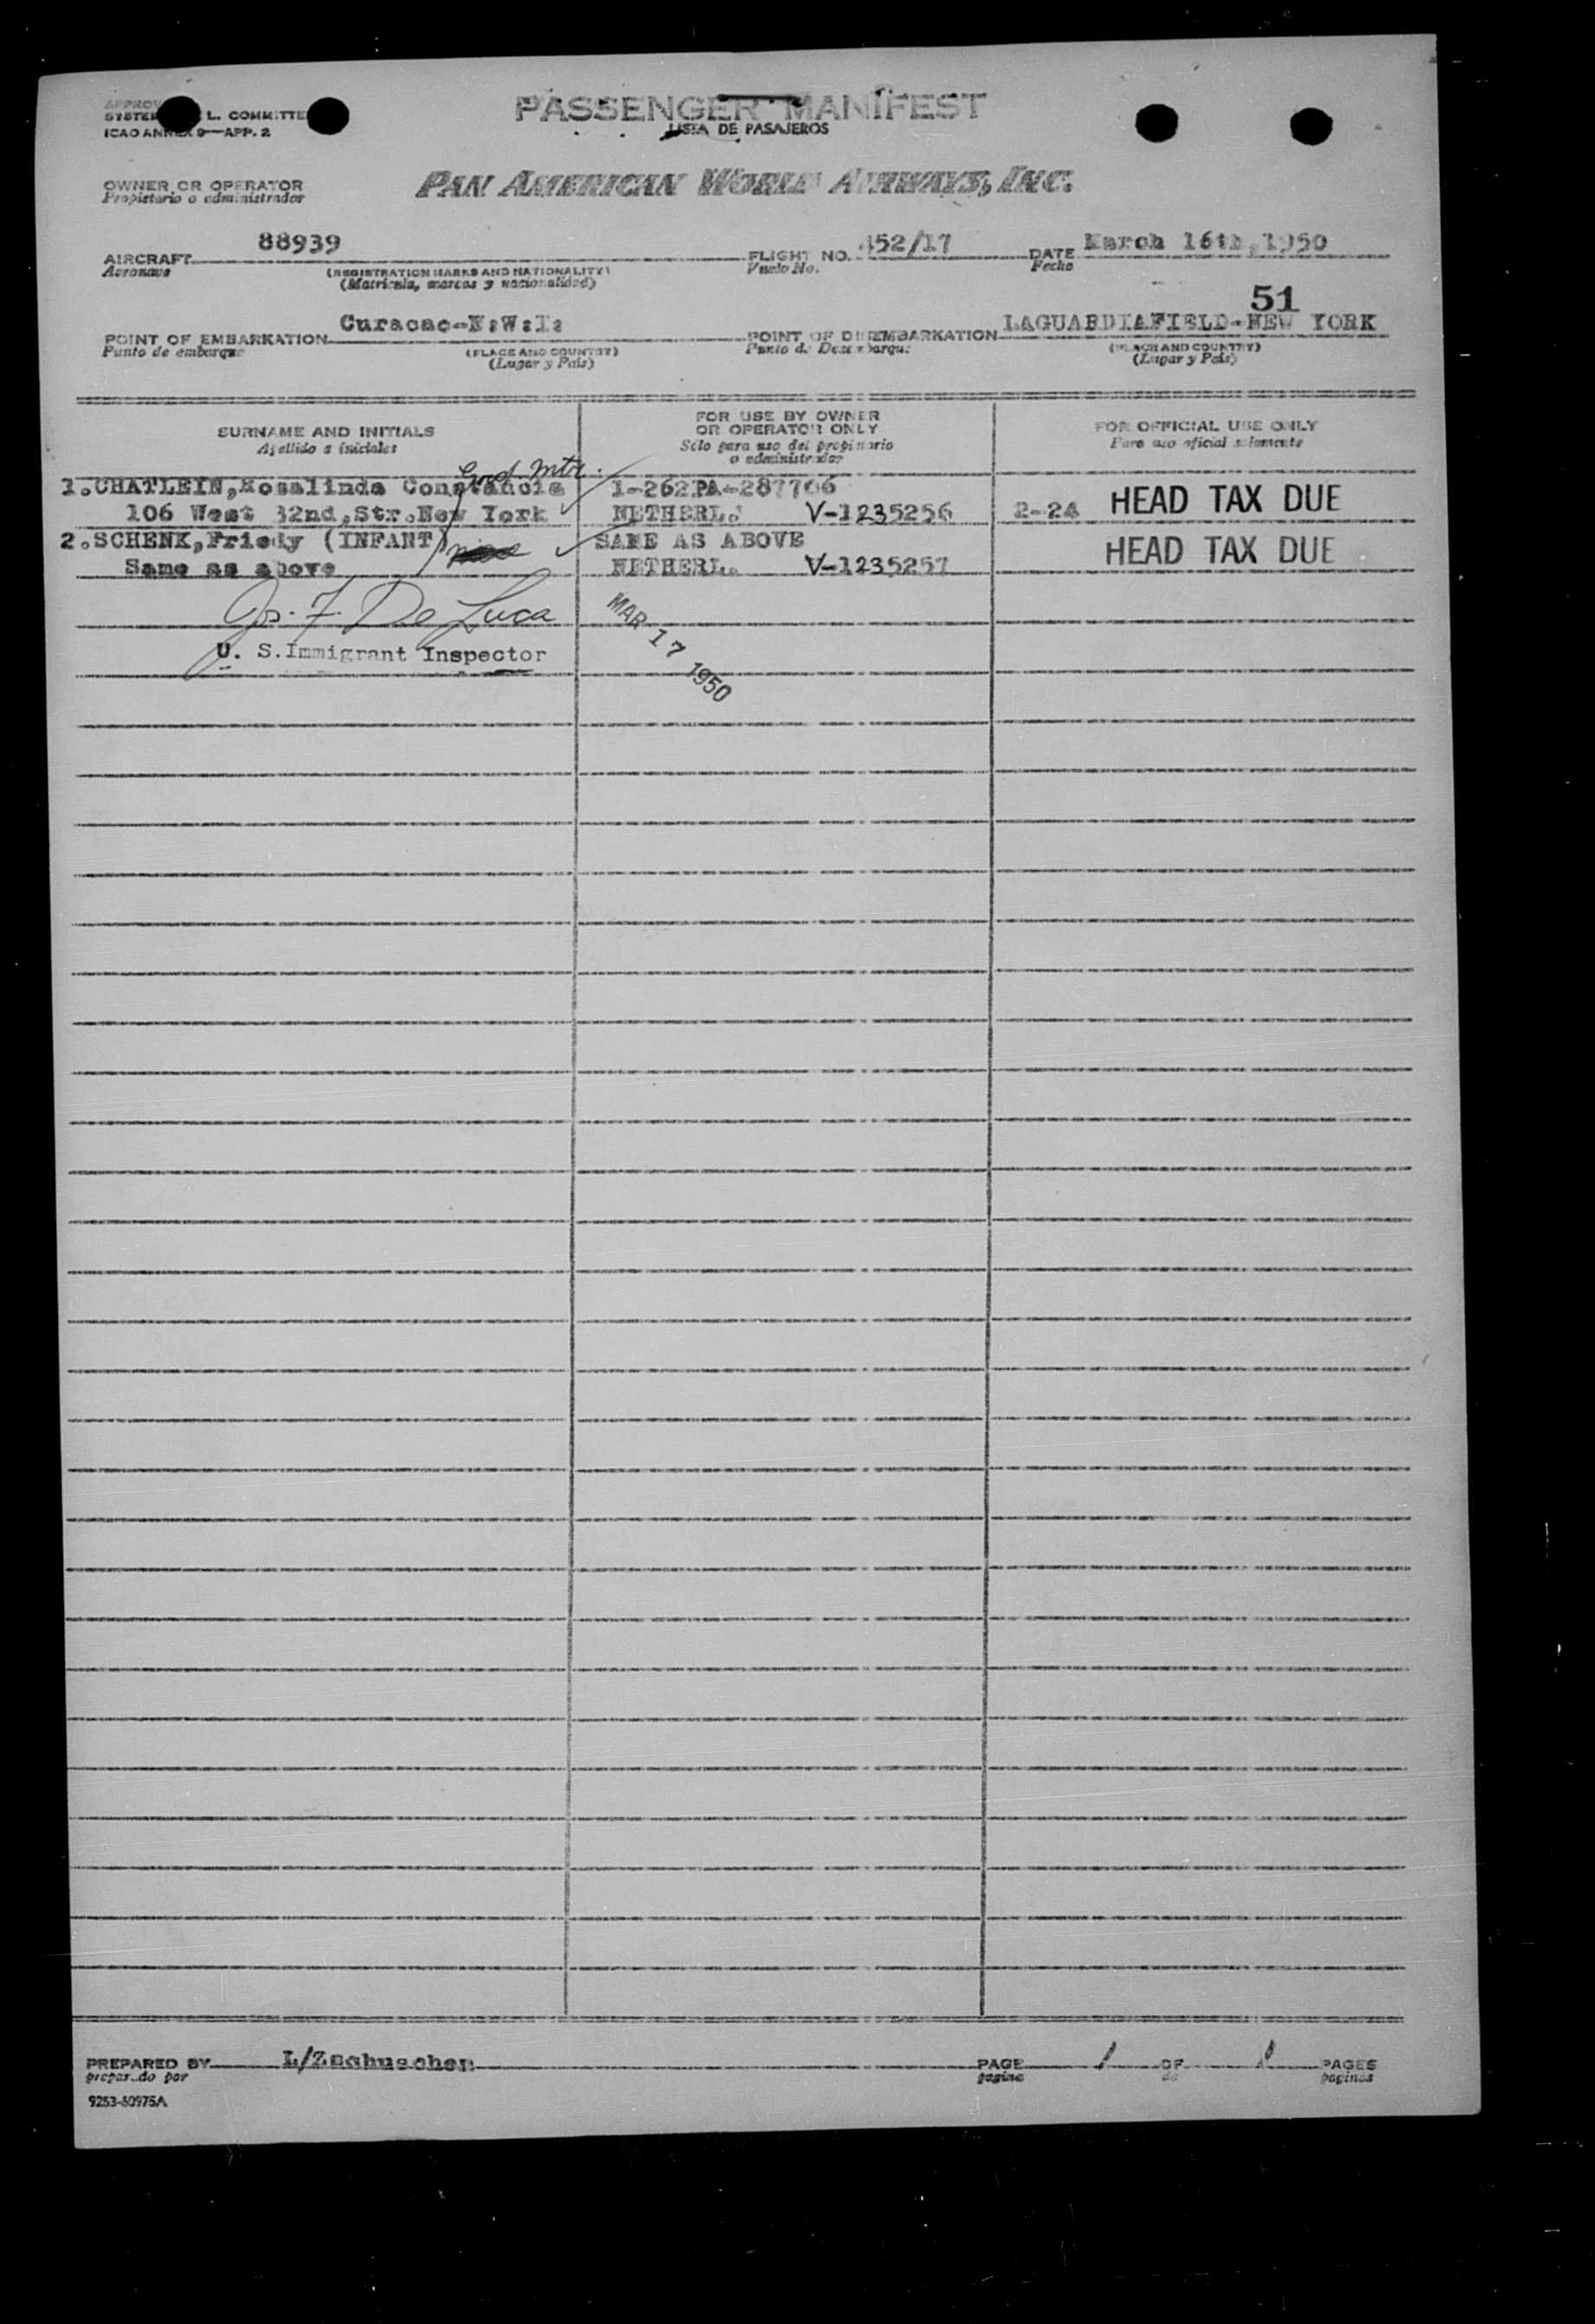 APPROV
SYSTEM L. COMMITTE
ICAO ANNEX 9—APP. 2
PASSENGER MANIFEST
LISTA DE PASAJEROS
OWNER OR OPERATOR
Propietario o administrador
PAN AMERICAN WORLD AIRWAYS, INC.
AIRCRAFT 88939 FLIGHT NO. 452/17 DATE March 16th,1950
Aeronave (REGISTRATION MARKS AND NATIONALITY) Vuelo No. Fecha
(Matricula, marcas y nacionalidad)
51
POINT OF EMBARKATION Curacao-N:W:I: POINT OF DISEMBARKATION LAGUARDIAFIELD-NEW YORK
Punto de embarque (PLACE AND COUNTRY) Punto de Desembarque (PLACE AND COUNTRY)
(Lugar y País) (Lugar y País)
SURNAME AND INITIALS
Apellido e iniciales
FOR USE BY OWNER
OR OPERATOR ONLY
Sólo para uso del propietario
o administrador
FOR OFFICIAL USE ONLY
Para uso oficial solamente
1.CHATLEIN,Rosalinda Constancia 1-262PA-287766
106 West 32nd,Str.New York NETHERL. V-1235256 2-24 HEAD TAX DUE
2.SCHENK,Friedy (INFANT) SAME AS ABOVE HEAD TAX DUE
Same as above NETHERL. V-1235257
Jos. F. De Luca
U. S.Immigrant Inspector
MAR 17 1950
PREPARED BY L/Zschuschen PAGE 1 OF 1 PAGES
preparado por pagina de paginas
9253-60975A